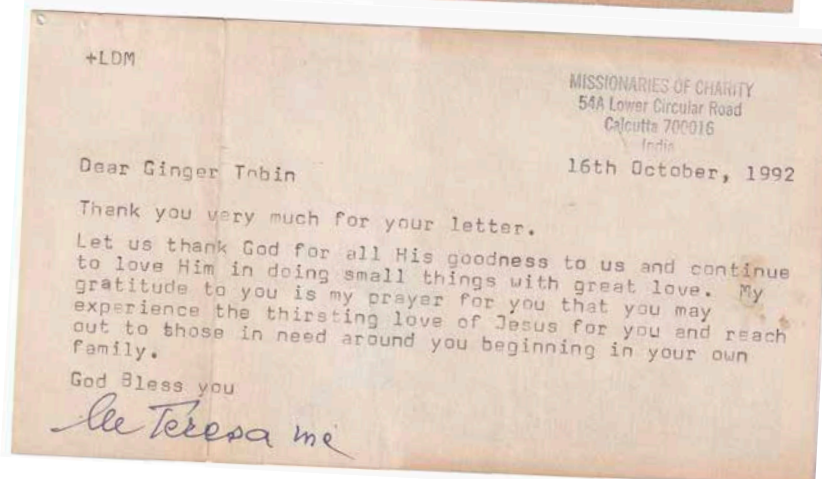 +LDM
MISSIONARIES OF CHARITY
54A Lower Circular Road
Calcutta 700016
India
16th October, 1992
Dear Ginger Tobin
Thank you very much for your letter.
Let us thank God for all His goodness to us and continue
to love Him in doing small things with great love. My
gratitude to you is my prayer for you that you may
experience the thirsting love of Jesus for you and reach
out to those in need around you beginning in your own
family.
God Bless you
Teresa mc